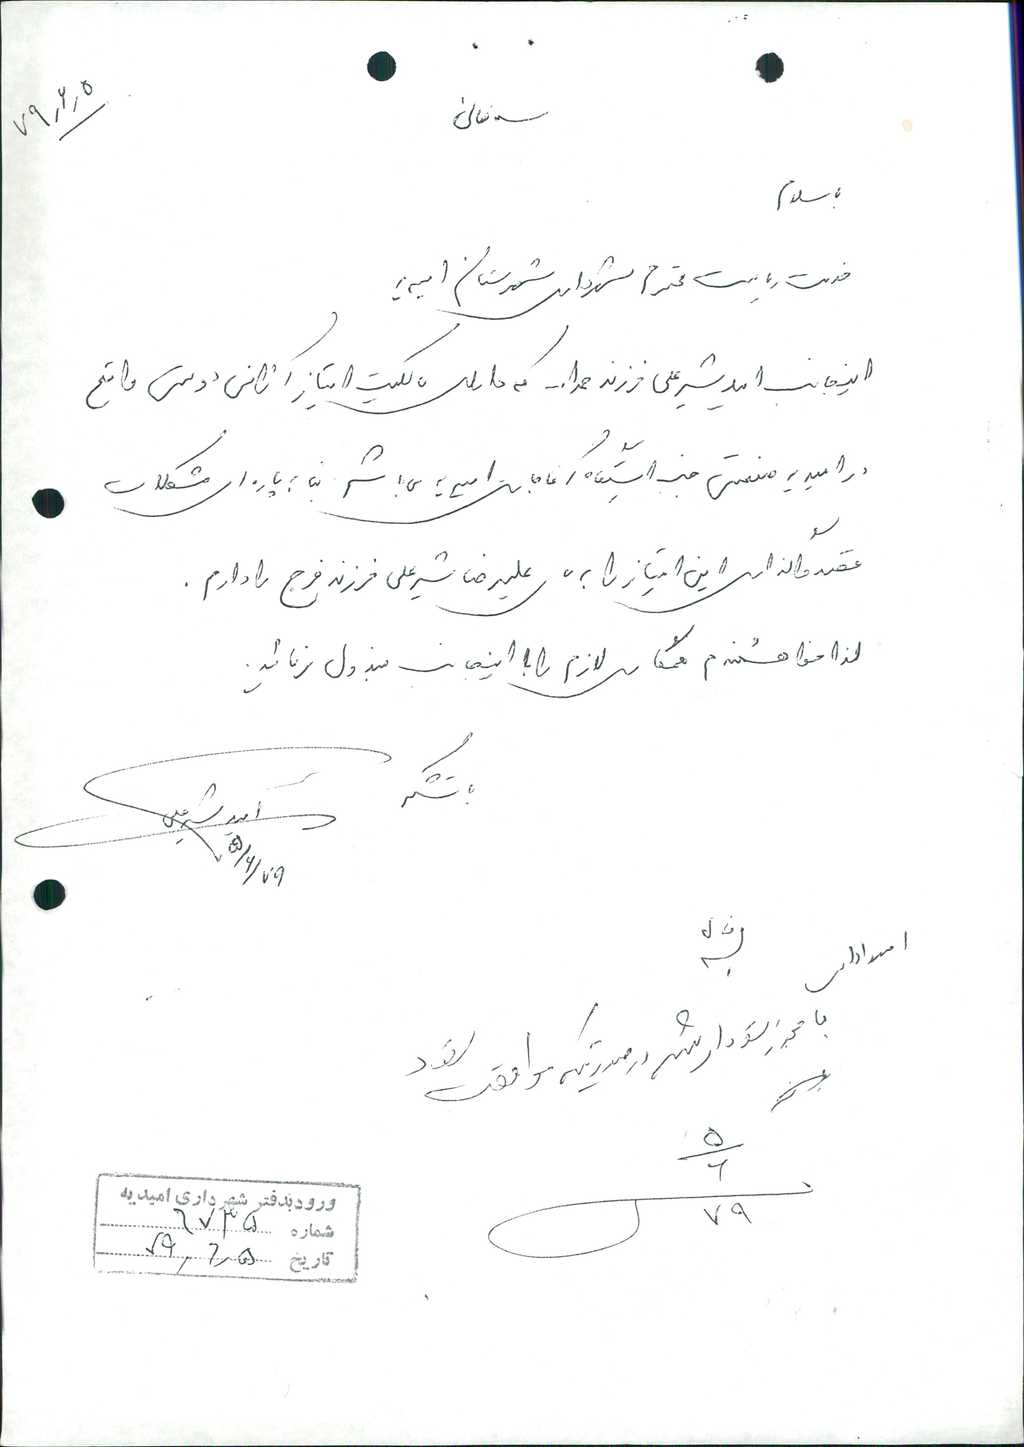 ۷۹٫۶٫۵
بسمه تعالی
با سلام
خدمت ریاست محترم شهرداری شهرستان امیدیه
اینجانب امید شیرعلی فرزند حمداله که دارای مالکیت امتیاز آژانس دوستی واقع
در امیدیه صنعتی جنب ایستگاه آغاجاری امیدیه می باشم بنا به پاره ای مشکلات
قصد واگذاری این امتیاز را به آقای علیرضا شیرعلی فرزند فرج را دارم .
لذا خواهشمندم همکاری لازم را با اینجانب مبذول فرمائید .
با تشکر
امید شیرعلی
۵/۶/۷۹
بسمه تعالی
امور اداری
با موافقت شود
۵
۶
۷۹
ورود بدفتر شهرداری امیدیه
شماره ۶۷۳۵
تاریخ ۷۹٫۶٫۵